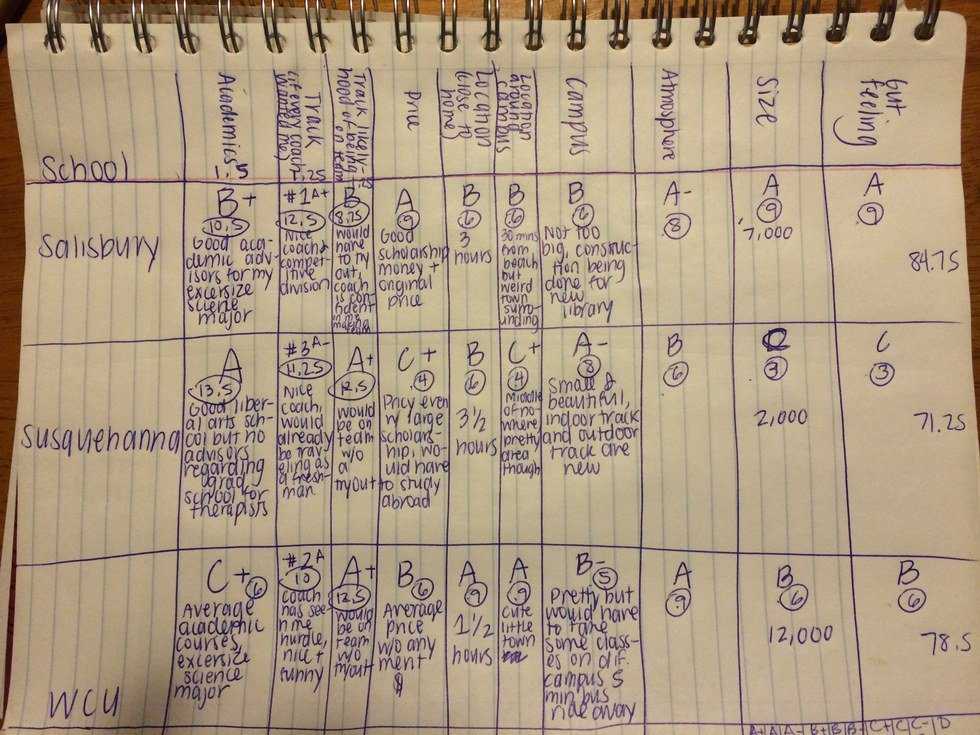 School
Academics
1.5
Track
(if every coach
wanted me)
1.25
Track likely-
hood of being
on team
Price
Location
close to
home
Location
around
campus
Campus
Atmosphere
Size
Gut
feeling
Salisbury
B+
10.5
Good aca-
demic adv-
isors for my
excersize
science
major
#1 A+
12.5
Nice
coach &
compet-
itive
division
B
8.75
would
have
to try
out,
coach
is con-
fident
A
9
Good
scholarship
money +
original
price
B
6
3
hours
B
6
30 mins
from
beach
but
weird
town
surro-
unding
B
6
Not too
big, construc-
tion being
done for
new
library
A-
8
A
9
7,000
A
9
84.75
Susquehanna
A
13.5
Good liber-
al arts sch-
ool but no
advisors
regarding
grad
school for
therapists
#3 A-
11.25
Nice
coach,
would
already
be trav-
eling as
a fresh-
man
A+
12.5
would
be on
team
w/o
a
tryout
C+
4
Pricy even
w/ large
scholars-
hip, wo-
uld have
to study
abroad
B
6
3 1/2
hours
C+
4
Middle
of no-
where
pretty
area
though
A-
8
Small &
beautiful,
indoor track
and outdoor
track are
new
B
6
C
3
2,000
C
3
71.25
WCU
C+
6
Average
academic
courses,
excersize
science
major
#2 A
10
coach
has see-
n me
hurdle,
nice +
funny
A+
12.5
would
be on
team
w/o
tryout
B
6
Average
price
w/o any
merit
$
A
9
1 1/2
hours
A
9
cute
little
town
B-
5
Pretty but
would have
to take
some class-
es on dif.
campus 5
min bus
ride away
A
9
B
6
12,000
B
6
78.5
A+|A|A-|B+|B|B-|C+|C|C-|D